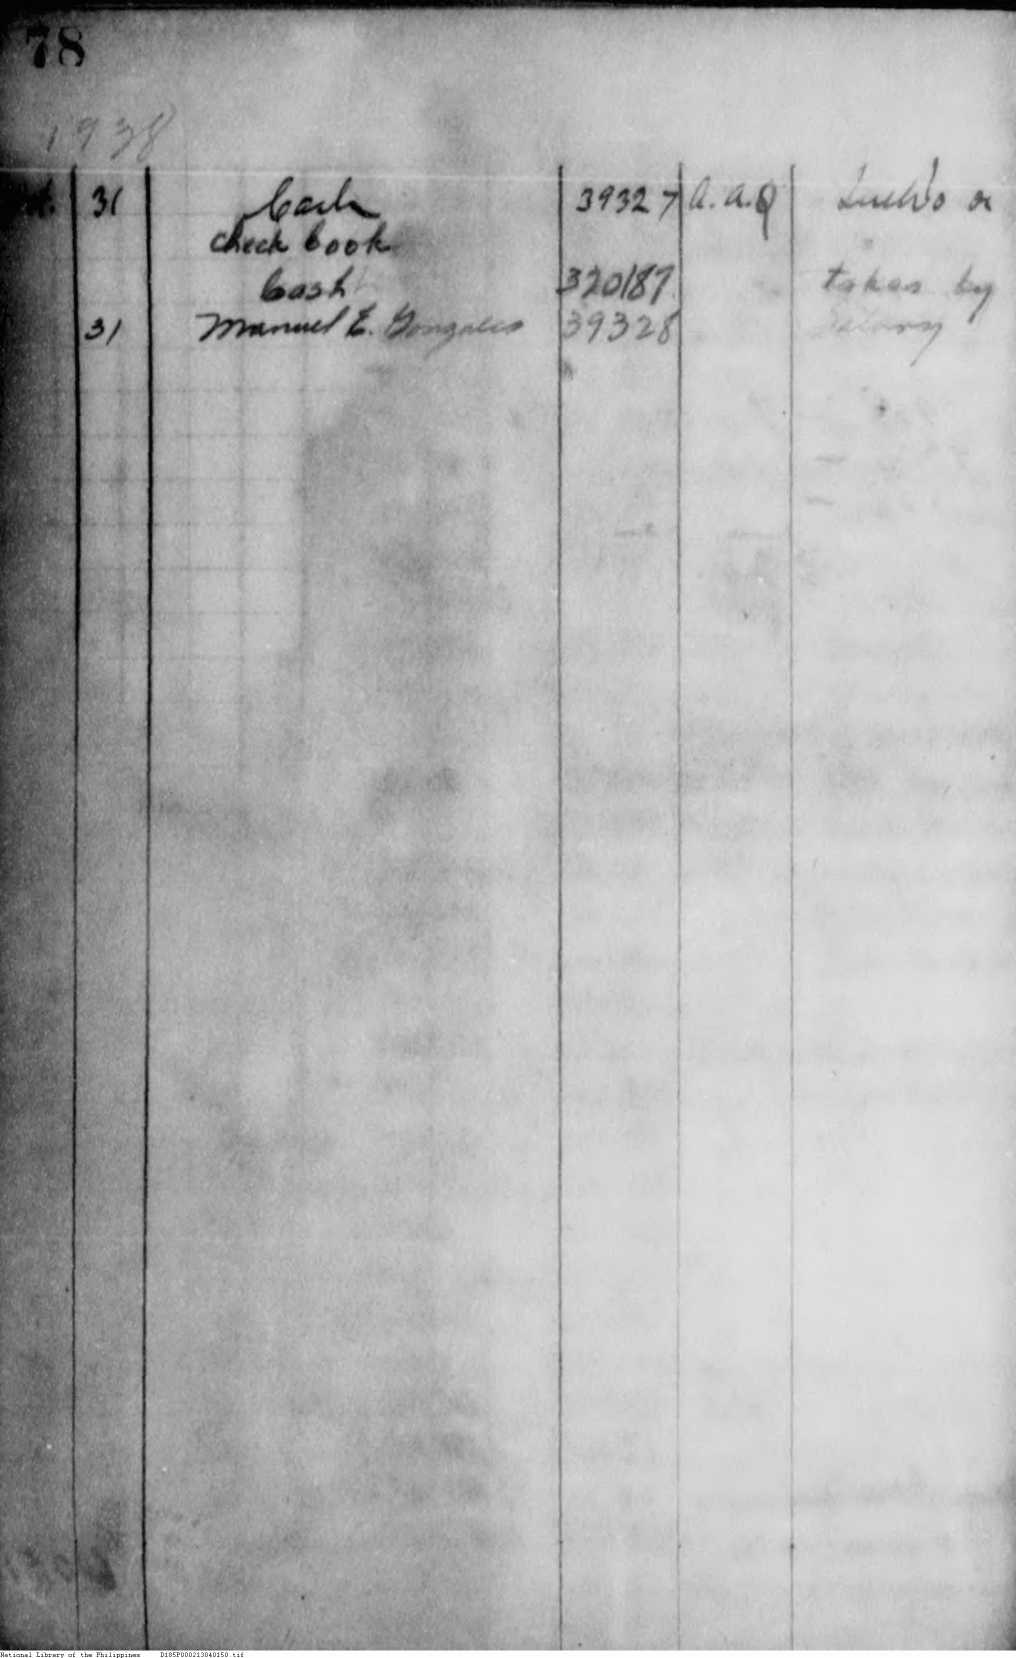 78
1938
31 Cash 39327 A.A.Q
check book
Cash 320187 taken by
31 Manuel E. Gonzales 39328 Salary
National Library of the Philippines D185P000213040150.tif